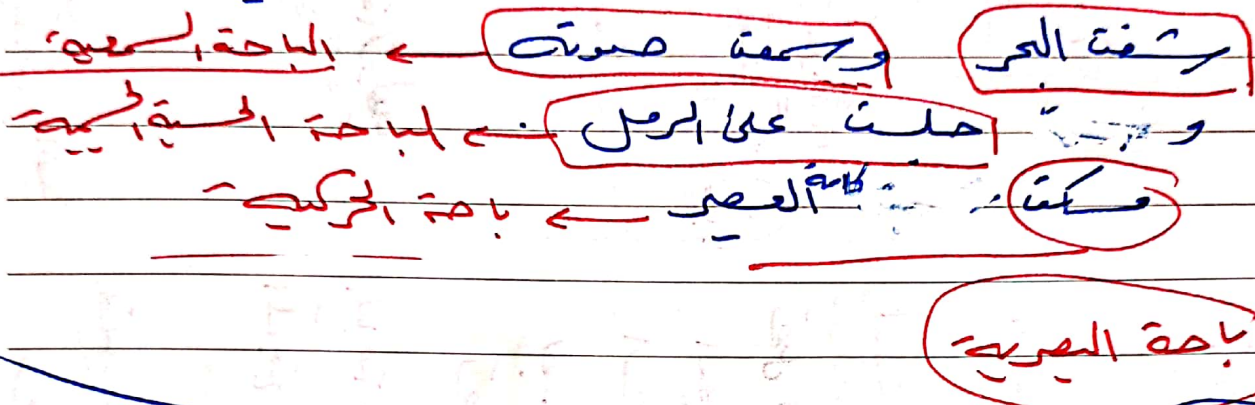 شفت البحر وسمعت صوته ← الباحة السمعية
و جلست على الرمل ← الباحة الحسية الجسمية
مسكت كاسة العصير ← باحة الحركية
باحة البصرية